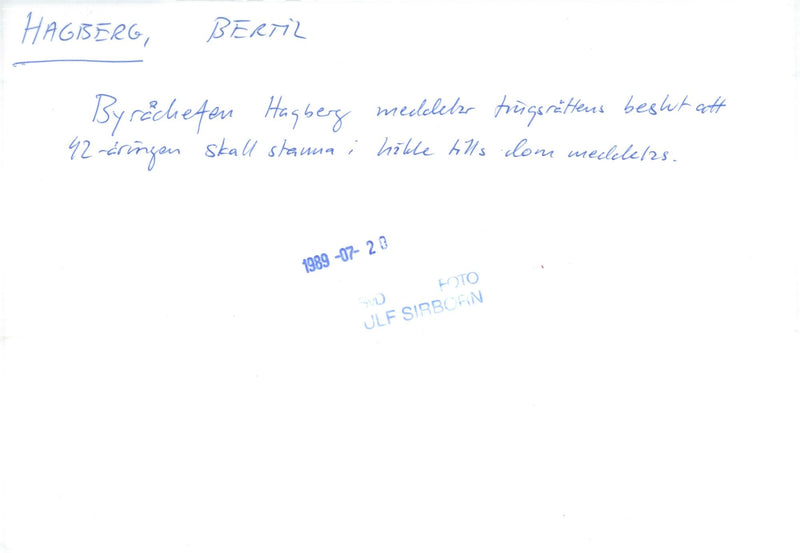 HAGBERG, BERTIL
Byråchefen Hagberg meddelar tingsrättens beslut att
42-åringen skall stanna i häkte tills dom meddelas.
1989-07-20
SvD FOTO
ULF SIRBORN